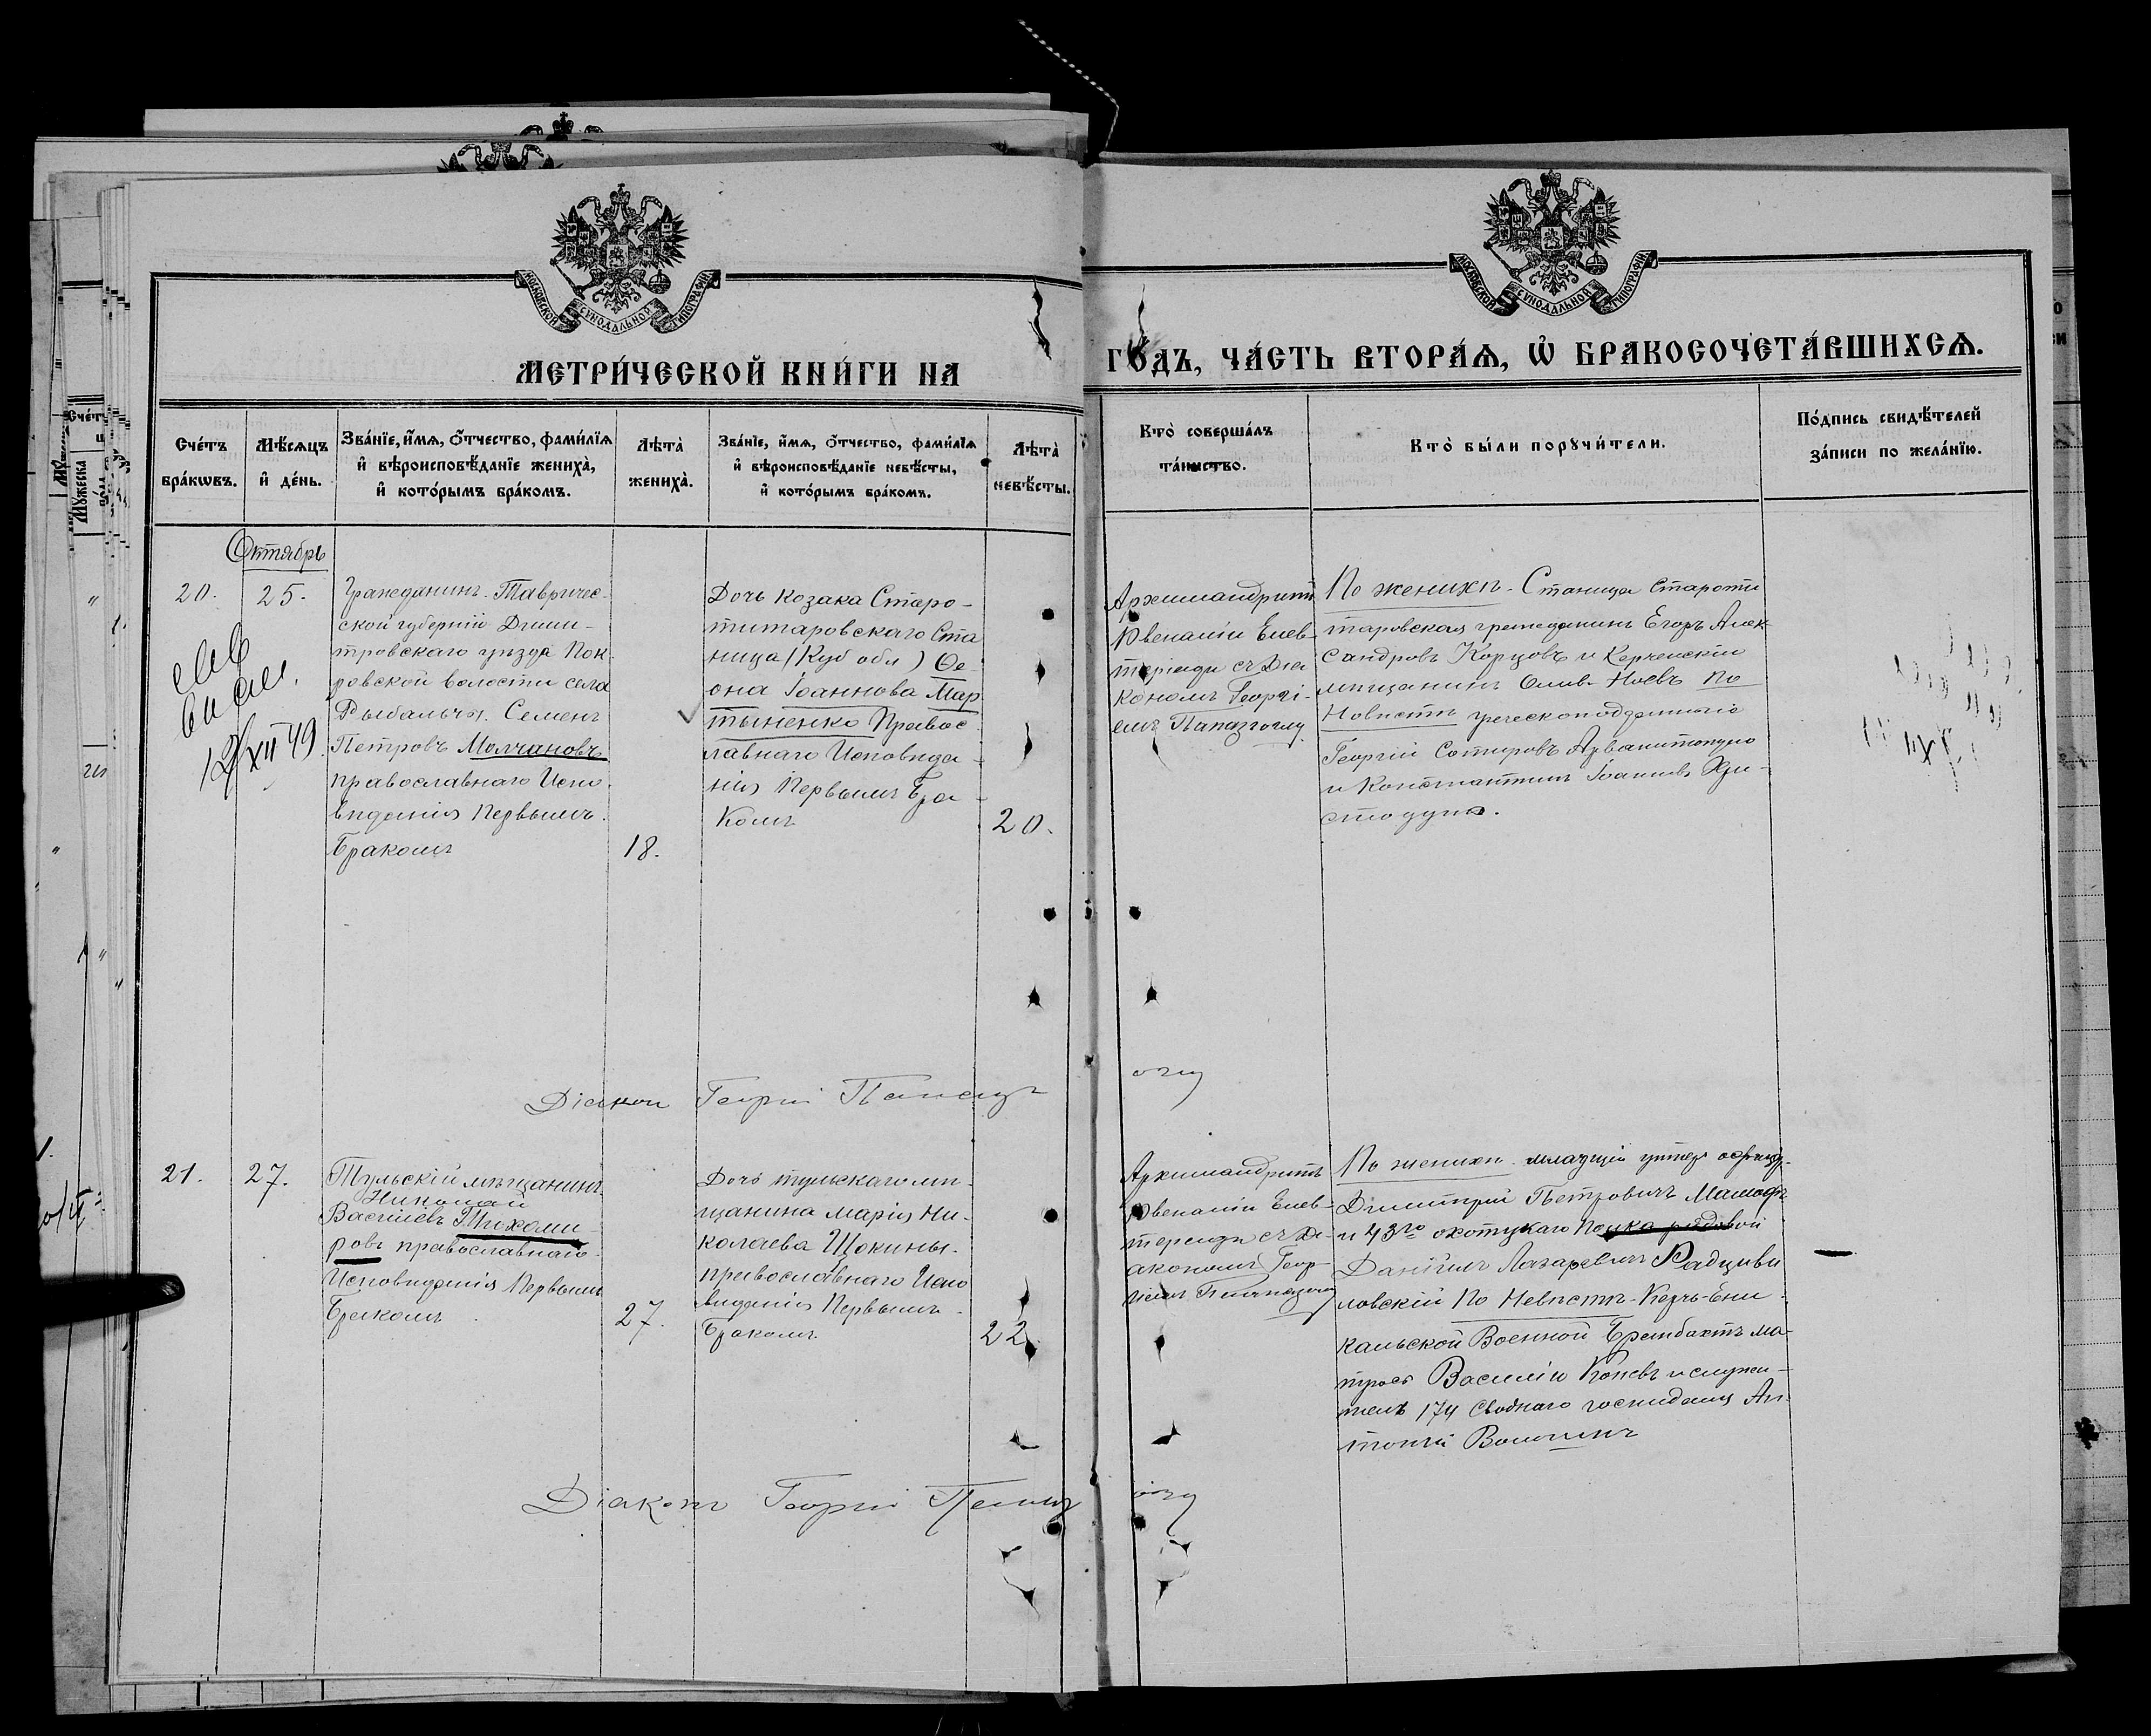 МОСКОВСКОЙ СѴНОДАЛЬНОЙ ТИПОГРАФІИ
МОСКОВСКОЙ СѴНОДАЛЬНОЙ ТИПОГРАФІИ
МЕТРИ́ЧЕСКОЙ КНИ́ГИ НА
ГО́ДЪ, ЧА́СТЬ ВТОРА́Ѧ, Ѡ БРАКОСОЧЕТА́ВШИХСѦ.
Сче́тъ бра́кѡвъ.
Мѣ́сѧцъ и҆ де́нь.
Зва́нїе, и҆́мѧ, ѻ҆́тчество, фами́лїѧ
и҆ вѣроисповѣ́данїе жениха̀,
и҆ кото́рымъ бра́комъ.
Лѣта̀
жениха̀.
Зва́нїе, и҆́мѧ, ѻ҆́тчество, фами́лїѧ
и҆ вѣроисповѣ́данїе невѣ́сты,
и҆ кото́рымъ бра́комъ.
Лѣта̀
невѣ́сты.
Кто̀ соверша́лъ
та́инство.
Кто̀ бы́ли порꙋчи́тели.
По́дпись свидѣ́телей
за́писи по жела́нїю.
Октябрь
20.
25.
12/XII 49
Гражданинъ Тавричес-
ской губерніи Дми-
тровскаго уѣзда Пок-
ровской волости села
Рыбальчя. Семенъ
Петровъ Молчановъ
православнаго Испо-
вѣданія Первымъ.
Бракомъ
18.
Дочь козака Старо-
титаровскаго Ста
ница (Куб обл) Ѳе-
она Іоаннова Мар
тыненко Правос
лавнаго Исповѣда-
нія Первымъ Бра-
комъ
20.
Архимандритъ
Ювеналій Елев-
теріади съ Діа
кономъ Георгі-
емъ Папазоглу
По женихѣ. Станица Старотти
таровская гражданинъ Егоръ Алек
сандровъ Корцовъ и Керченскій
мѣщанинъ Ноевъ По
Невѣстѣ греческоподданный
Георгій Сотировъ
и Константинъ Іоанновъ Хри-
стодуло.
Діаконъ Георгій Папазоглу
21.
27.
Тульскій мѣщанинъ
Николай
Василіевъ Тихоми-
ровъ православнаго
Исповѣданія Первымъ
Бракомъ
27.
Дочь тульскаго мѣ-
щанина Марія Ни-
колаева Щокины.
православнаго Испо
вѣданія Первымъ
Бракомъ
22.
Архимандритъ
Ювеналій Елев-
теріади съ Ді-
акономъ Геор-
гіемъ Папазоглу
По женихѣ. младшій унтеръ офицр.
Димитрій Петровичъ
и 43го охотскаго полка рядовой
Даніилъ Лазаревичъ Радциви
ловскій По Невѣстѣ-Керчь-Ени-
кальской Военной Брандвахтъ ма-
тросъ Василій Коневъ и служи-
тель 174 Своднаго госпиталя Ан-
тоній Волошинъ
Діаконъ Георгій Папазоглу